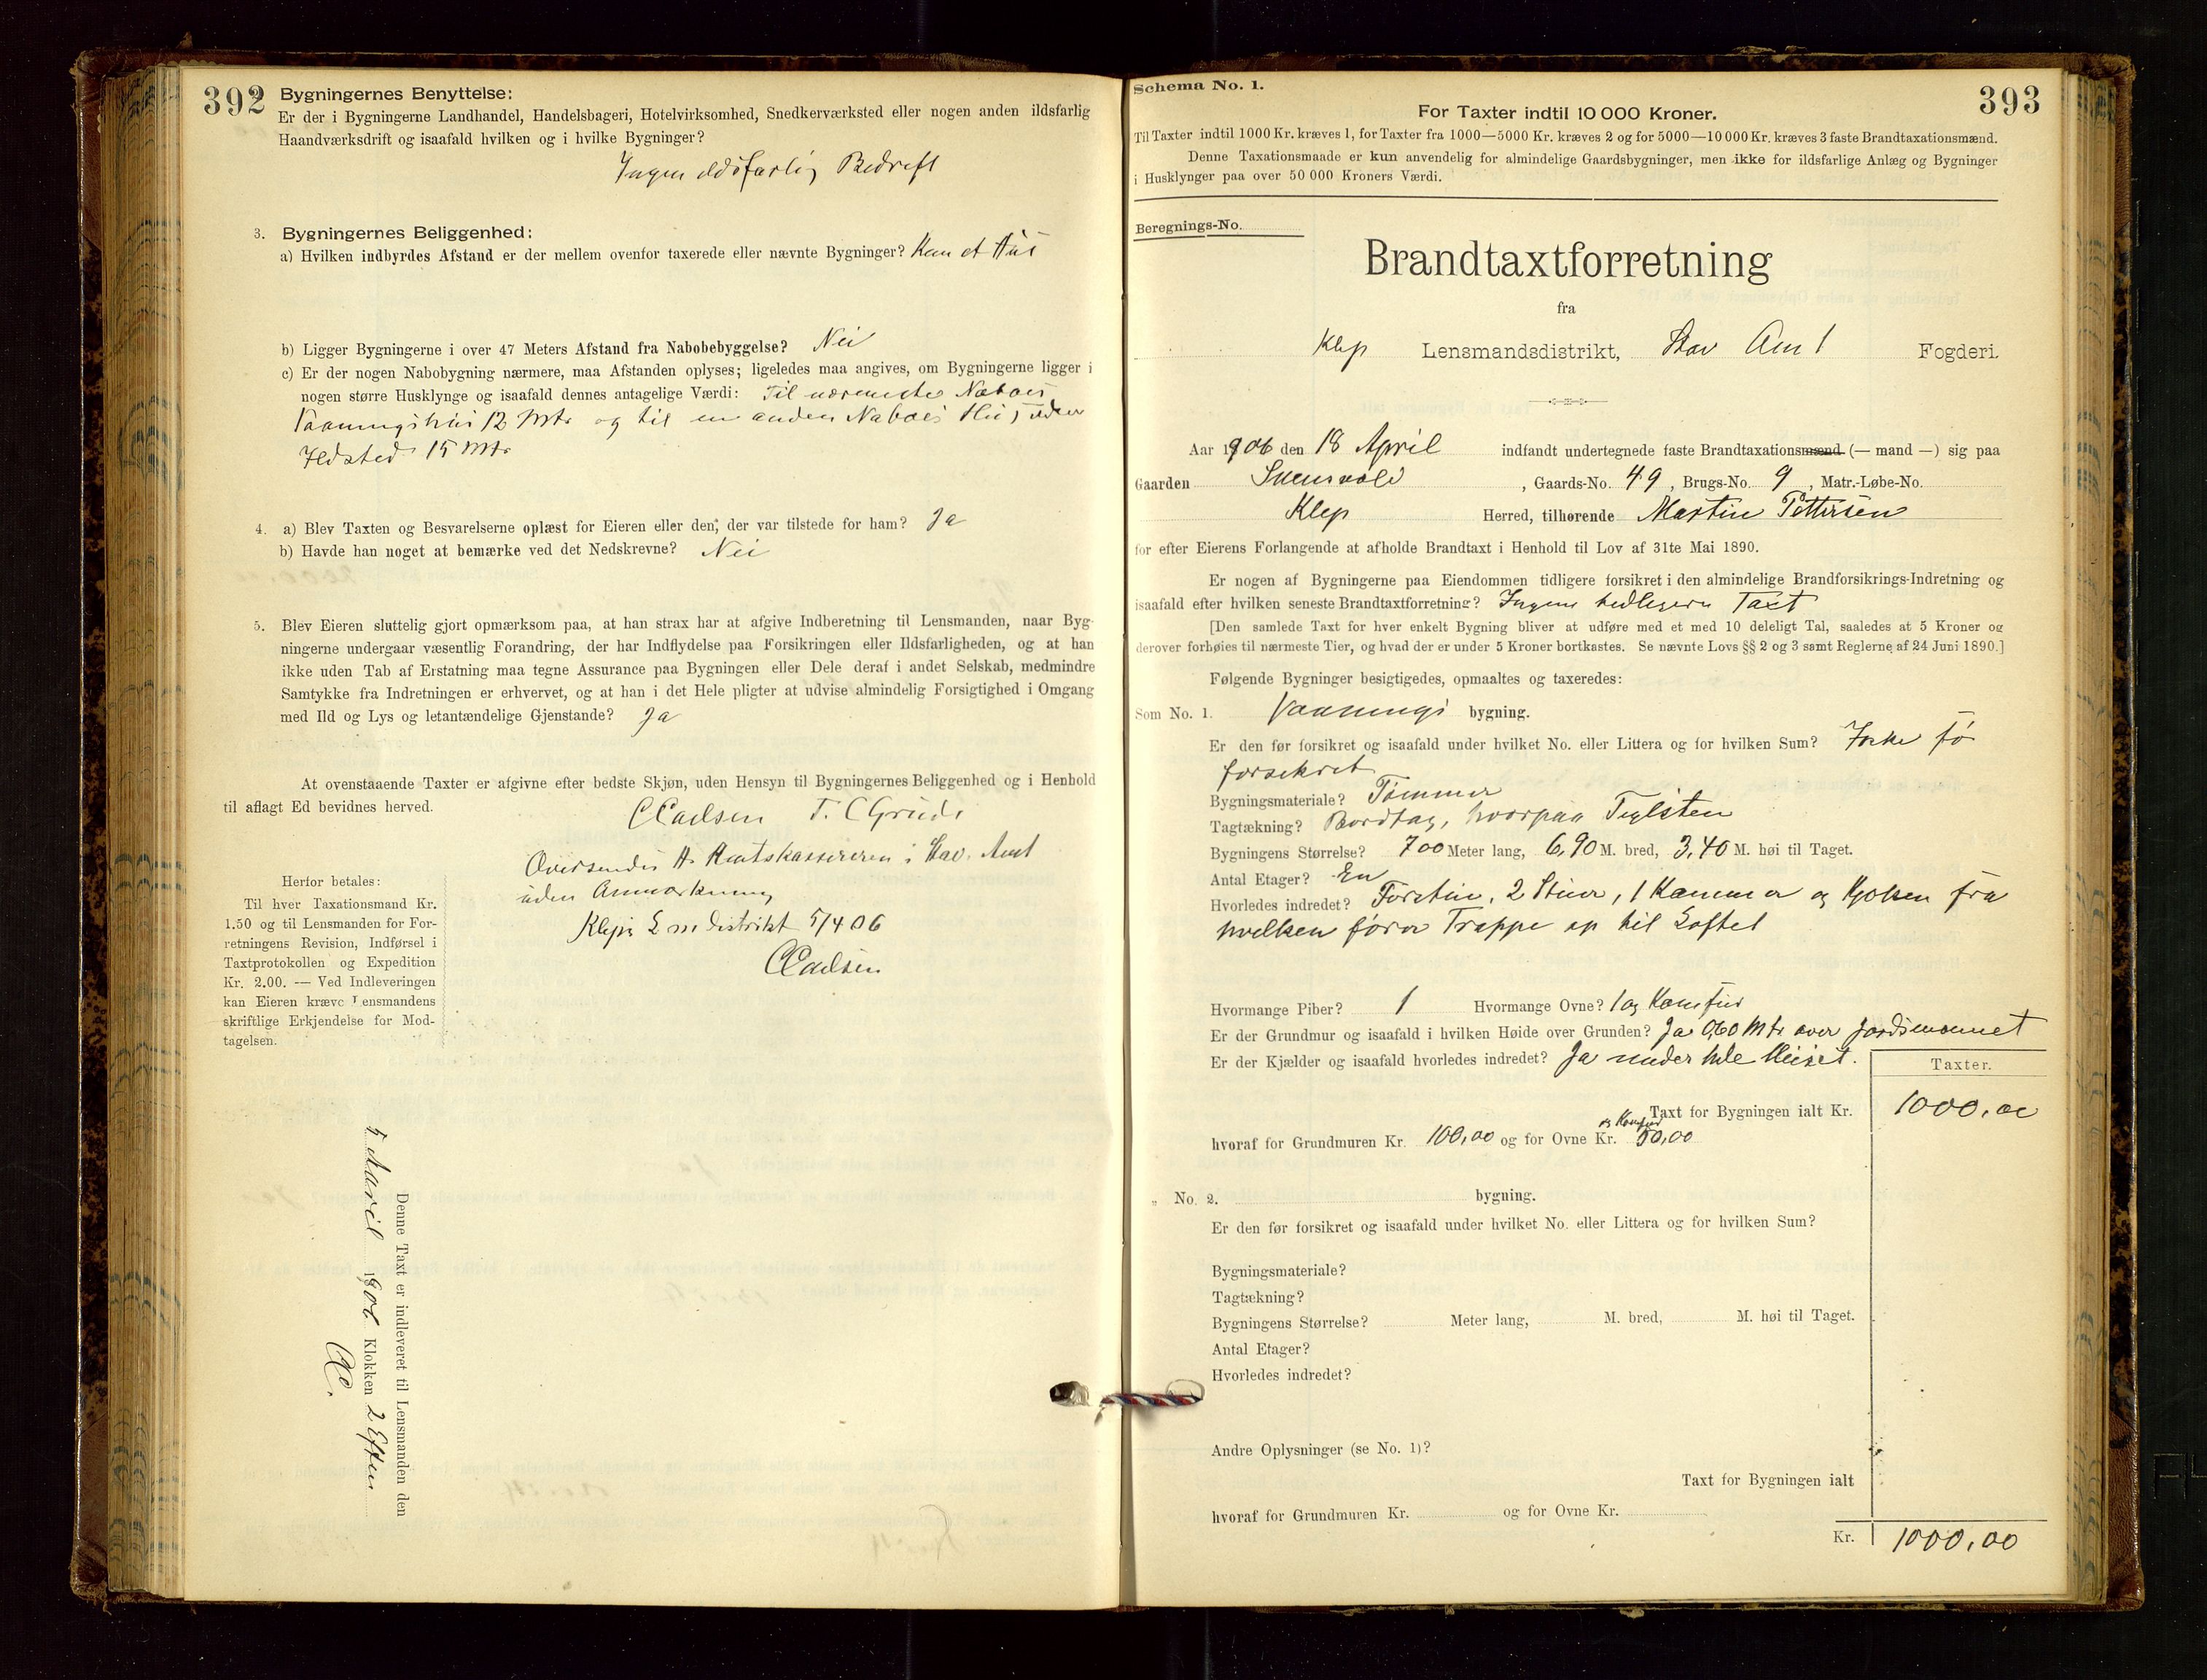 392
Bygningernes Benyttelse:
Er der i Bygningerne Landhandel, Handelsbageri, Hotelvirksomhed, Snedkerværksted eller nogen anden ildsfarlig
Haandværksdrift og isaafald hvilken og i hvilke Bygninger?
Ingen ildsfarlig Bedrift
3. Bygningernes Beliggenhed:
a) Hvilken indbyrdes Afstand er der mellem ovenfor taxerede eller nævnte Bygninger? Kun et Hus
b) Ligger Bygningerne i over 47 Meters Afstand fra Nabobebyggelse? Nei
c) Er der nogen Nabobygning nærmere, maa Afstanden oplyses; ligeledes maa angives, om Bygningerne ligger i
nogen større Husklynge og isaafald dennes antagelige Værdi: Til nærmeste Naboes
Vaaningshus 12 Mtr og til en anden Naboes Hus uden
Ildsted 15 Mtr
4. a) Blev Taxten og Besvarelserne oplæst for Eieren eller den, der var tilstede for ham? Ja
b) Havde han noget at bemærke ved det Nedskrevne? Nei
5. Blev Eieren sluttelig gjort opmærksom paa, at han strax har at afgive Indberetning til Lensmanden, naar Byg-
ningerne undergaar væsentlig Forandring, der har Indflydelse paa Forsikringen eller Ildsfarligheden, og at han
ikke uden Tab af Erstatning maa tegne Assurance paa Bygningen eller Dele deraf i andet Selskab, medmindre
Samtykke fra Indretningen er erhvervet, og at han i det Hele pligter at udvise almindelig Forsigtighed i Omgang
med Ild og Lys og letantændelige Gjenstande? Ja
At ovenstaaende Taxter er afgivne efter bedste Skjøn, uden Hensyn til Bygningernes Beliggenhed og i Henhold
til aflagt Ed bevidnes herved.
CCarlsen T. C Grude
Oversendes Hr Amtskassereren i Stav. Amt
uden Anmærkning
Klep Lmdistrikt 5/4 06
CCarlsen
Herfor betales:
Til hver Taxationsmand Kr.
1.50 og til Lensmanden for For-
retningens Revision, Indførsel i
Taxtprotokollen og Expedition
Kr. 2.00. — Ved Indleveringen
kan Eieren kræve Lensmandens
skriftlige Erkjendelse for Mod-
tagelsen.
Denne Taxt er indleveret til Lensmanden den
5 April 1906 Klokken 2 Eftm
CC.
Schema No. 1.
393
For Taxter indtil 10 000 Kroner.
Til Taxter indtil 1000 Kr. kræves 1, for Taxter fra 1000—5000 Kr. kræves 2 og for 5000—10 000 Kr. kræves 3 faste Brandtaxationsmænd.
Denne Taxationsmaade er kun anvendelig for almindelige Gaardsbygninger, men ikke for ildsfarlige Anlæg og Bygninger
i Husklynger paa over 50 000 Kroners Værdi.
Beregnings-No.
Brandtaxtforretning
fra
Klep Lensmandsdistrikt, Stav Amt Fogderi.
Aar 1906 den 18 April indfandt undertegnede faste Brandtaxationsmænd (— mand —) sig paa
Gaarden , Gaards-No. 49, Brugs-No. 9, Matr.-Løbe-No.
Klep Herred, tilhørende Martin Pettersen
for efter Eierens Forlangende at afholde Brandtaxt i Henhold til Lov af 31te Mai 1890.
Er nogen af Bygningerne paa Eiendommen tidligere forsikret i den almindelige Brandforsikrings-Indretning og
isaafald efter hvilken seneste Brandtaxtforretning? Ingen tidligere Taxt
[Den samlede Taxt for hver enkelt Bygning bliver at udføre med et med 10 deleligt Tal, saaledes at 5 Kroner og
derover forhøies til nærmeste Tier, og hvad der er under 5 Kroner bortkastes. Se nævnte Lovs §§ 2 og 3 samt Reglerne af 24 Juni 1890.]
Følgende Bygninger besigtigedes, opmaaltes og taxeredes:
Som No. 1. Vaanings bygning.
Er den før forsikret og isaafald under hvilket No. eller Littera og for hvilken Sum? Ikke før
forsikret
Bygningsmateriale? Tømmer
Tagtækning? Bordtag, hvorpaa Teglsten
Bygningens Størrelse? 700 Meter lang, 6,90 M. bred, 3,40 M. høi til Taget.
Antal Etager? En
Hvorledes indredet? Forstue, 2 Stuer, 1 Kammer og Kjøkken fra
hvilken fører Trappe op til Loftet
Hvormange Piber? 1 Hvormange Ovne? 1 og Komfur
Er der Grundmur og isaafald i hvilken Høide over Grunden? Ja 0,60 Mtr over Jordsmonnet
Er der Kjælder og isaafald hvorledes indredet? Ja under hele Huset.
Taxter.
Taxt for Bygningen ialt Kr. 1000,00
og Komfur
hvoraf for Grundmuren Kr. 100,00 og for Ovne Kr. 50,00
„ No. 2. bygning.
Er den før forsikret og isaafald under hvilket No. eller Littera og for hvilken Sum?
Bygningsmateriale?
Tagtækning?
Bygningens Størrelse? Meter lang, M. bred, M. høi til Taget.
Antal Etager?
Hvorledes indredet?
Andre Oplysninger (se No. 1)?
Taxt for Bygningen ialt
hvoraf for Grundmuren Kr. og for Ovne Kr.
Kr. 1000,00